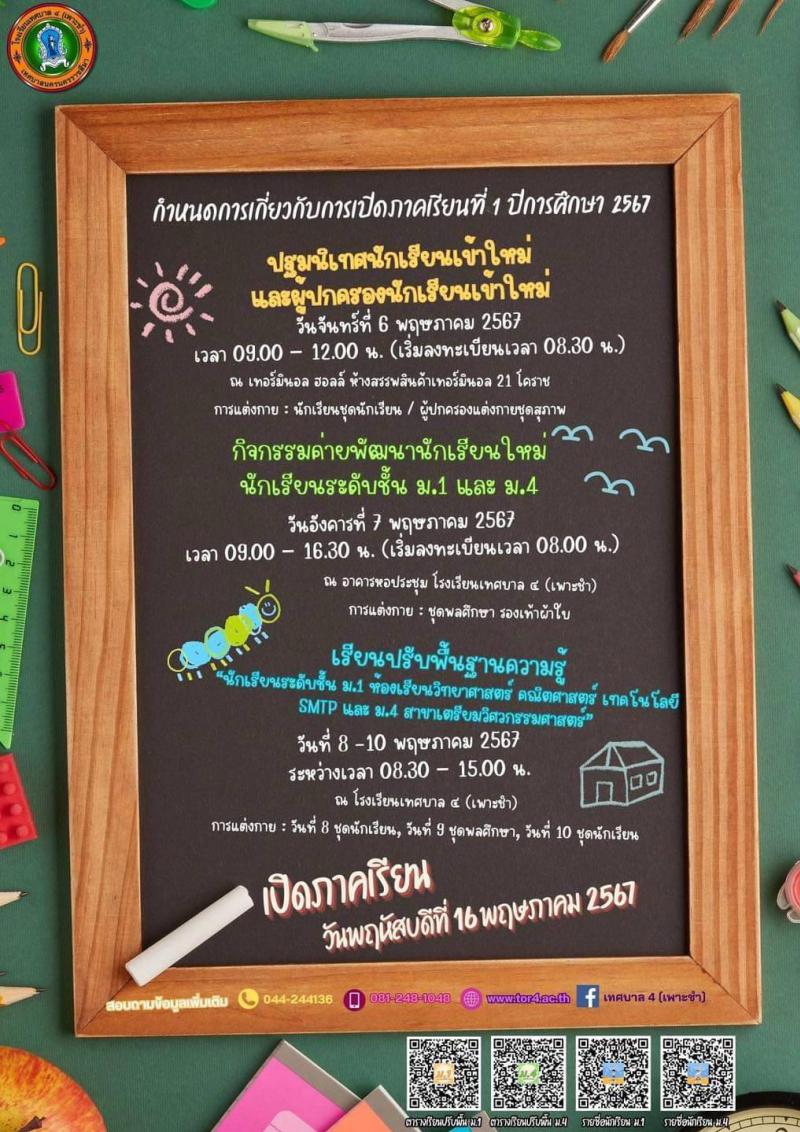 โรงเรียนเทศบาล ๔ (เพาะชำ)
เทศบาลนครนครราชสีมา
กำหนดการเกี่ยวกับการเปิดภาคเรียนที่ 1 ปีการศึกษา 2567
ปฐมนิเทศนักเรียนเข้าใหม่
และผู้ปกครองนักเรียนเข้าใหม่
วันจันทร์ที่ 6 พฤษภาคม 2567
เวลา 09.00 – 12.00 น. (เริ่มลงทะเบียนเวลา 08.30 น.)
ณ เทอร์มินอล ฮอลล์ ห้างสรรพสินค้าเทอร์มินอล 21 โคราช
การแต่งกาย : นักเรียนชุดนักเรียน / ผู้ปกครองแต่งกายชุดสุภาพ
กิจกรรมค่ายพัฒนานักเรียนใหม่
นักเรียนระดับชั้น ม.1 และ ม.4
วันอังคารที่ 7 พฤษภาคม 2567
เวลา 09.00 – 16.30 น. (เริ่มลงทะเบียนเวลา 08.00 น.)
ณ อาคารหอประชุม โรงเรียนเทศบาล ๔ (เพาะชำ)
การแต่งกาย : ชุดพลศึกษา รองเท้าผ้าใบ
เรียนปรับพื้นฐานความรู้
"นักเรียนระดับชั้น ม.1 ห้องเรียนวิทยาศาสตร์ คณิตศาสตร์ เทคโนโลยี
SMTP และ ม.4 สาขาเตรียมวิศวกรรมศาสตร์"
วันที่ 8 -10 พฤษภาคม 2567
ระหว่างเวลา 08.30 – 15.00 น.
ณ โรงเรียนเทศบาล ๔ (เพาะชำ)
การแต่งกาย : วันที่ 8 ชุดนักเรียน, วันที่ 9 ชุดพลศึกษา, วันที่ 10 ชุดนักเรียน
เปิดภาคเรียน
วันพฤหัสบดีที่ 16 พฤษภาคม 2567
สอบถามข้อมูลเพิ่มเติม 044-244136 081-248-1048 www.tor4.ac.th เทศบาล 4 (เพาะชำ)
ม.1 ม.4
ตารางเรียนปรับพื้น ม.1 ตารางเรียนปรับพื้น ม.4 รายชื่อนักเรียน ม.1 รายชื่อนักเรียน ม.4